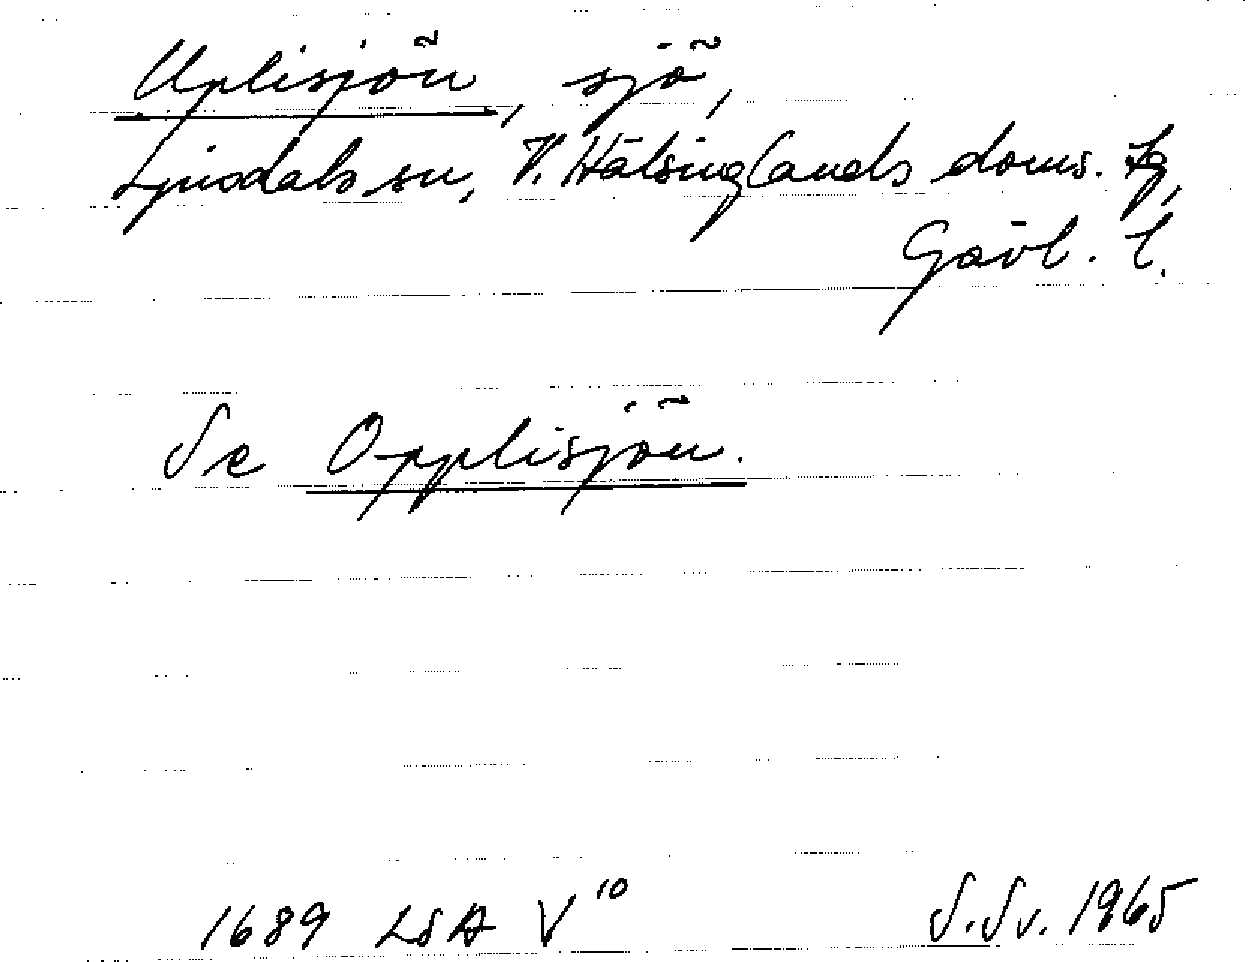 Uplisjön, sjö,
Ljusdals sn, V. Hälsinglands doms. tg,
Gävl. l.
Se Opplisjön.
1689 LSA V 10 S.Sv. 1965